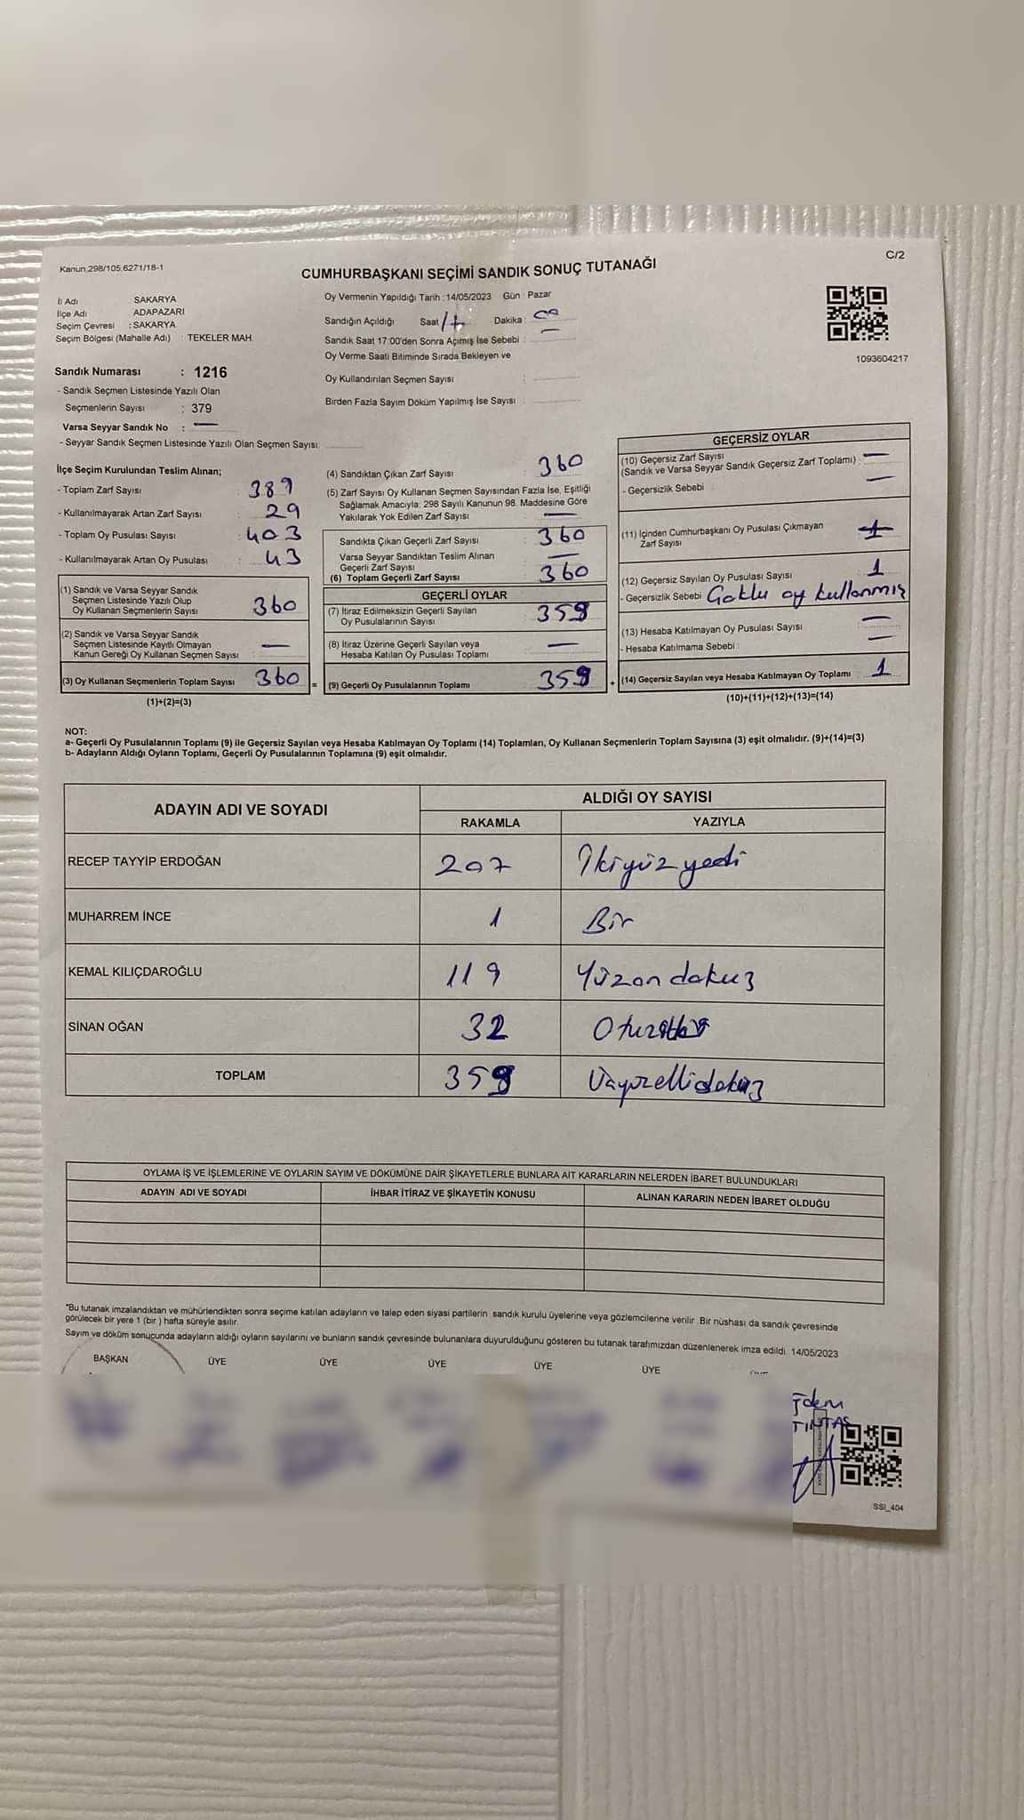 Kanun.298/105.6271/18-1
C/2
CUMHURBAŞKANI SEÇİMİ SANDIK SONUÇ TUTANAĞI
İl Adı SAKARYA
İlçe Adı ADAPAZARI
Seçim Çevresi : SAKARYA
Seçim Bölgesi (Mahalle Adı) TEKELER MAH.
Sandık Numarası : 1216
- Sandık Seçmen Listesinde Yazılı Olan
Seçmenlerin Sayısı : 379
Varsa Seyyar Sandık No : —
- Seyyar Sandık Seçmen Listesinde Yazılı Olan Seçmen Sayısı:
Oy Vermenin Yapıldığı Tarih : 14/05/2023 Gün : Pazar
Sandığın Açıldığı Saat 17 Dakika : 00
Sandık Saat 17:00'den Sonra Açımış İse Sebebi : —
Oy Verme Saati Bitiminde Sırada Bekleyen ve
Oy Kullandırılan Seçmen Sayısı :
Birden Fazla Sayım Döküm Yapılmış İse Sayısı :
1093604217
İlçe Seçim Kurulundan Teslim Alınan;
- Toplam Zarf Sayısı : 389
- Kullanılmayarak Artan Zarf Sayısı : 29
- Toplam Oy Pusulası Sayısı : 403
- Kullanılmayarak Artan Oy Pusulası : 43
(1) Sandık ve Varsa Seyyar Sandık
Seçmen Listesinde Yazılı Olup
Oy Kullanan Seçmenlerin Sayısı 360
(2) Sandık ve Varsa Seyyar Sandık
Seçmen Listesinde Kayıtlı Olmayan
Kanun Gereği Oy Kullanan Seçmen Sayısı —
(3) Oy Kullanan Seçmenlerin Toplam Sayısı 360 =
(1)+(2)=(3)
(4) Sandıktan Çıkan Zarf Sayısı : 360
(5) Zarf Sayısı Oy Kullanan Seçmen Sayısından Fazla İse, Eşitliği
Sağlamak Amacıyla; 298 Sayılı Kanunun 98. Maddesine Göre
Yakılarak Yok Edilen Zarf Sayısı —
Sandıkta Çıkan Geçerli Zarf Sayısı : 360
Varsa Seyyar Sandıktan Teslim Alınan
Geçerli Zarf Sayısı : —
(6) Toplam Geçerli Zarf Sayısı : 360
GEÇERLİ OYLAR
(7) İtiraz Edilmeksizin Geçerli Sayılan
Oy Pusulalarının Sayısı : 359
(8) İtiraz Üzerine Geçerli Sayılan veya
Hesaba Katılan Oy Pusulası Toplamı : —
(9) Geçerli Oy Pusulalarının Toplamı 359 +
GEÇERSİZ OYLAR
(10) Geçersiz Zarf Sayısı
(Sandık ve Varsa Seyyar Sandık Geçersiz Zarf Toplamı) : —
- Geçersizlik Sebebi —
(11) İçinden Cumhurbaşkanı Oy Pusulası Çıkmayan
Zarf Sayısı
(12) Geçersiz Sayılan Oy Pusulası Sayısı 1
- Geçersizlik Sebebi Çoklu oy kullanmış
(13) Hesaba Katılmayan Oy Pusulası Sayısı —
- Hesaba Katılmama Sebebi : —
(14) Geçersiz Sayılan veya Hesaba Katılmayan Oy Toplamı : 1
(10)+(11)+(12)+(13)=(14)
NOT:
a- Geçerli Oy Pusulalarının Toplamı (9) ile Geçersiz Sayılan veya Hesaba Katılmayan Oy Toplamı (14) Toplamları, Oy Kullanan Seçmenlerin Toplam Sayısına (3) eşit olmalıdır. (9)+(14)=(3)
b- Adayların Aldığı Oyların Toplamı, Geçerli Oy Pusulalarının Toplamına (9) eşit olmalıdır.
ADAYIN ADI VE SOYADI
ALDIĞI OY SAYISI
RAKAMLA YAZIYLA
RECEP TAYYİP ERDOĞAN 207 İkiyüz yedi
MUHARREM İNCE 1 Bir
KEMAL KILIÇDAROĞLU 119 Yüzon dokuz
SİNAN OĞAN 32 Otuziki
TOPLAM 359 Üçyüzellidokuz
OYLAMA İŞ VE İŞLEMLERİNE VE OYLARIN SAYIM VE DÖKÜMÜNE DAİR ŞİKAYETLERLE BUNLARA AİT KARARLARIN NELERDEN İBARET BULUNDUKLARI
ADAYIN ADI VE SOYADI İHBAR İTİRAZ VE ŞİKAYETİN KONUSU ALINAN KARARIN NEDEN İBARET OLDUĞU
*Bu tutanak imzalandıktan ve mühürlendikten sonra seçime katılan adayların ve talep eden siyasi partilerin sandık kurulu üyelerine veya gözlemcilerine verilir. Bir nüshası da sandık çevresinde
görülecek bir yere 1 (bir) hafta süreyle asılır.
Sayım ve döküm sonucunda adayların aldığı oyların sayılarını ve bunların sandık çevresinde bulunanlara duyurulduğunu gösteren bu tutanak tarafımızdan düzenlenerek imza edildi. 14/05/2023
BAŞKAN ÜYE ÜYE ÜYE ÜYE ÜYE
SSI_404